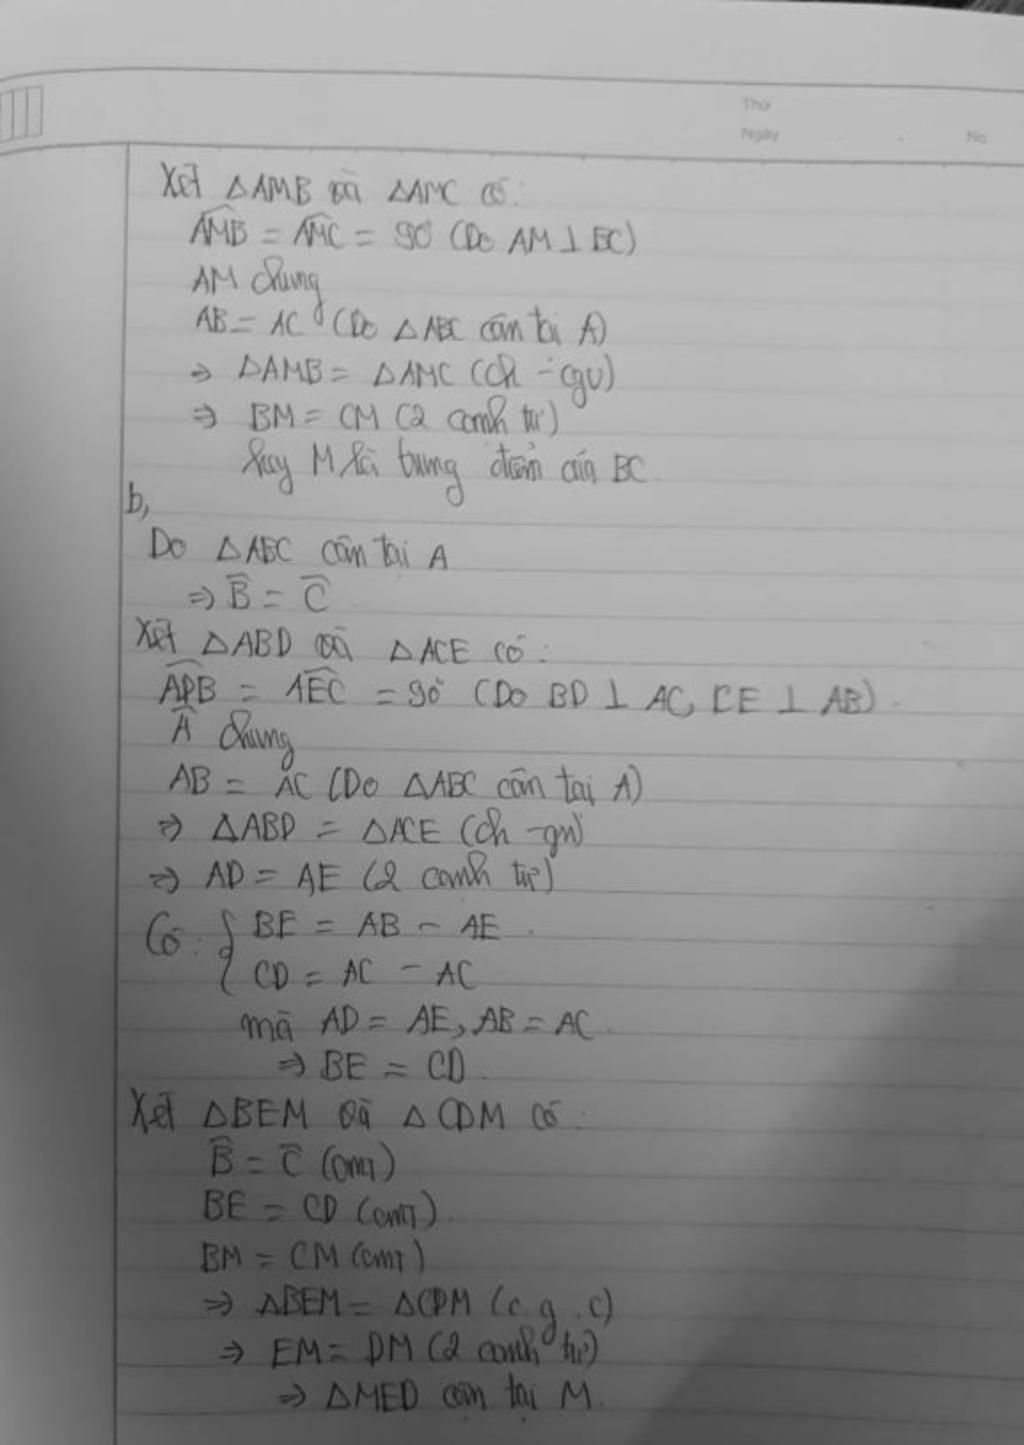 Thứ
Ngày No
Xét ΔAMB và ΔAMC có:
AMB = AMC = 90° (Do AM ⊥ BC)
AM chung
AB = AC (Do ΔABC cân tại A)
⇒ ΔAMB = ΔAMC (ch - cgv)
⇒ BM = CM (2 cạnh tư)
hay M là trung điểm của BC.
b,
Do ΔABC cân tại A
⇒ B̂ = Ĉ
Xét ΔABD và ΔACE có:
ADB = AEC = 90° (Do BD ⊥ AC, CE ⊥ AB).
Â chung
AB = AC (Do ΔABC cân tại A)
⇒ ΔABD = ΔACE (ch - gn)
⇒ AD = AE (2 cạnh tư)
Có: { BE = AB - AE
CD = AC - AC
mà AD = AE, AB = AC.
⇒ BE = CD.
Xét ΔBEM và ΔCDM có:
B̂ = Ĉ (cmt)
BE = CD (cmt).
BM = CM (cmt)
⇒ ΔBEM = ΔCDM (c.g.c)
⇒ EM = DM (2 cạnh tư)
⇒ ΔMED cân tại M.